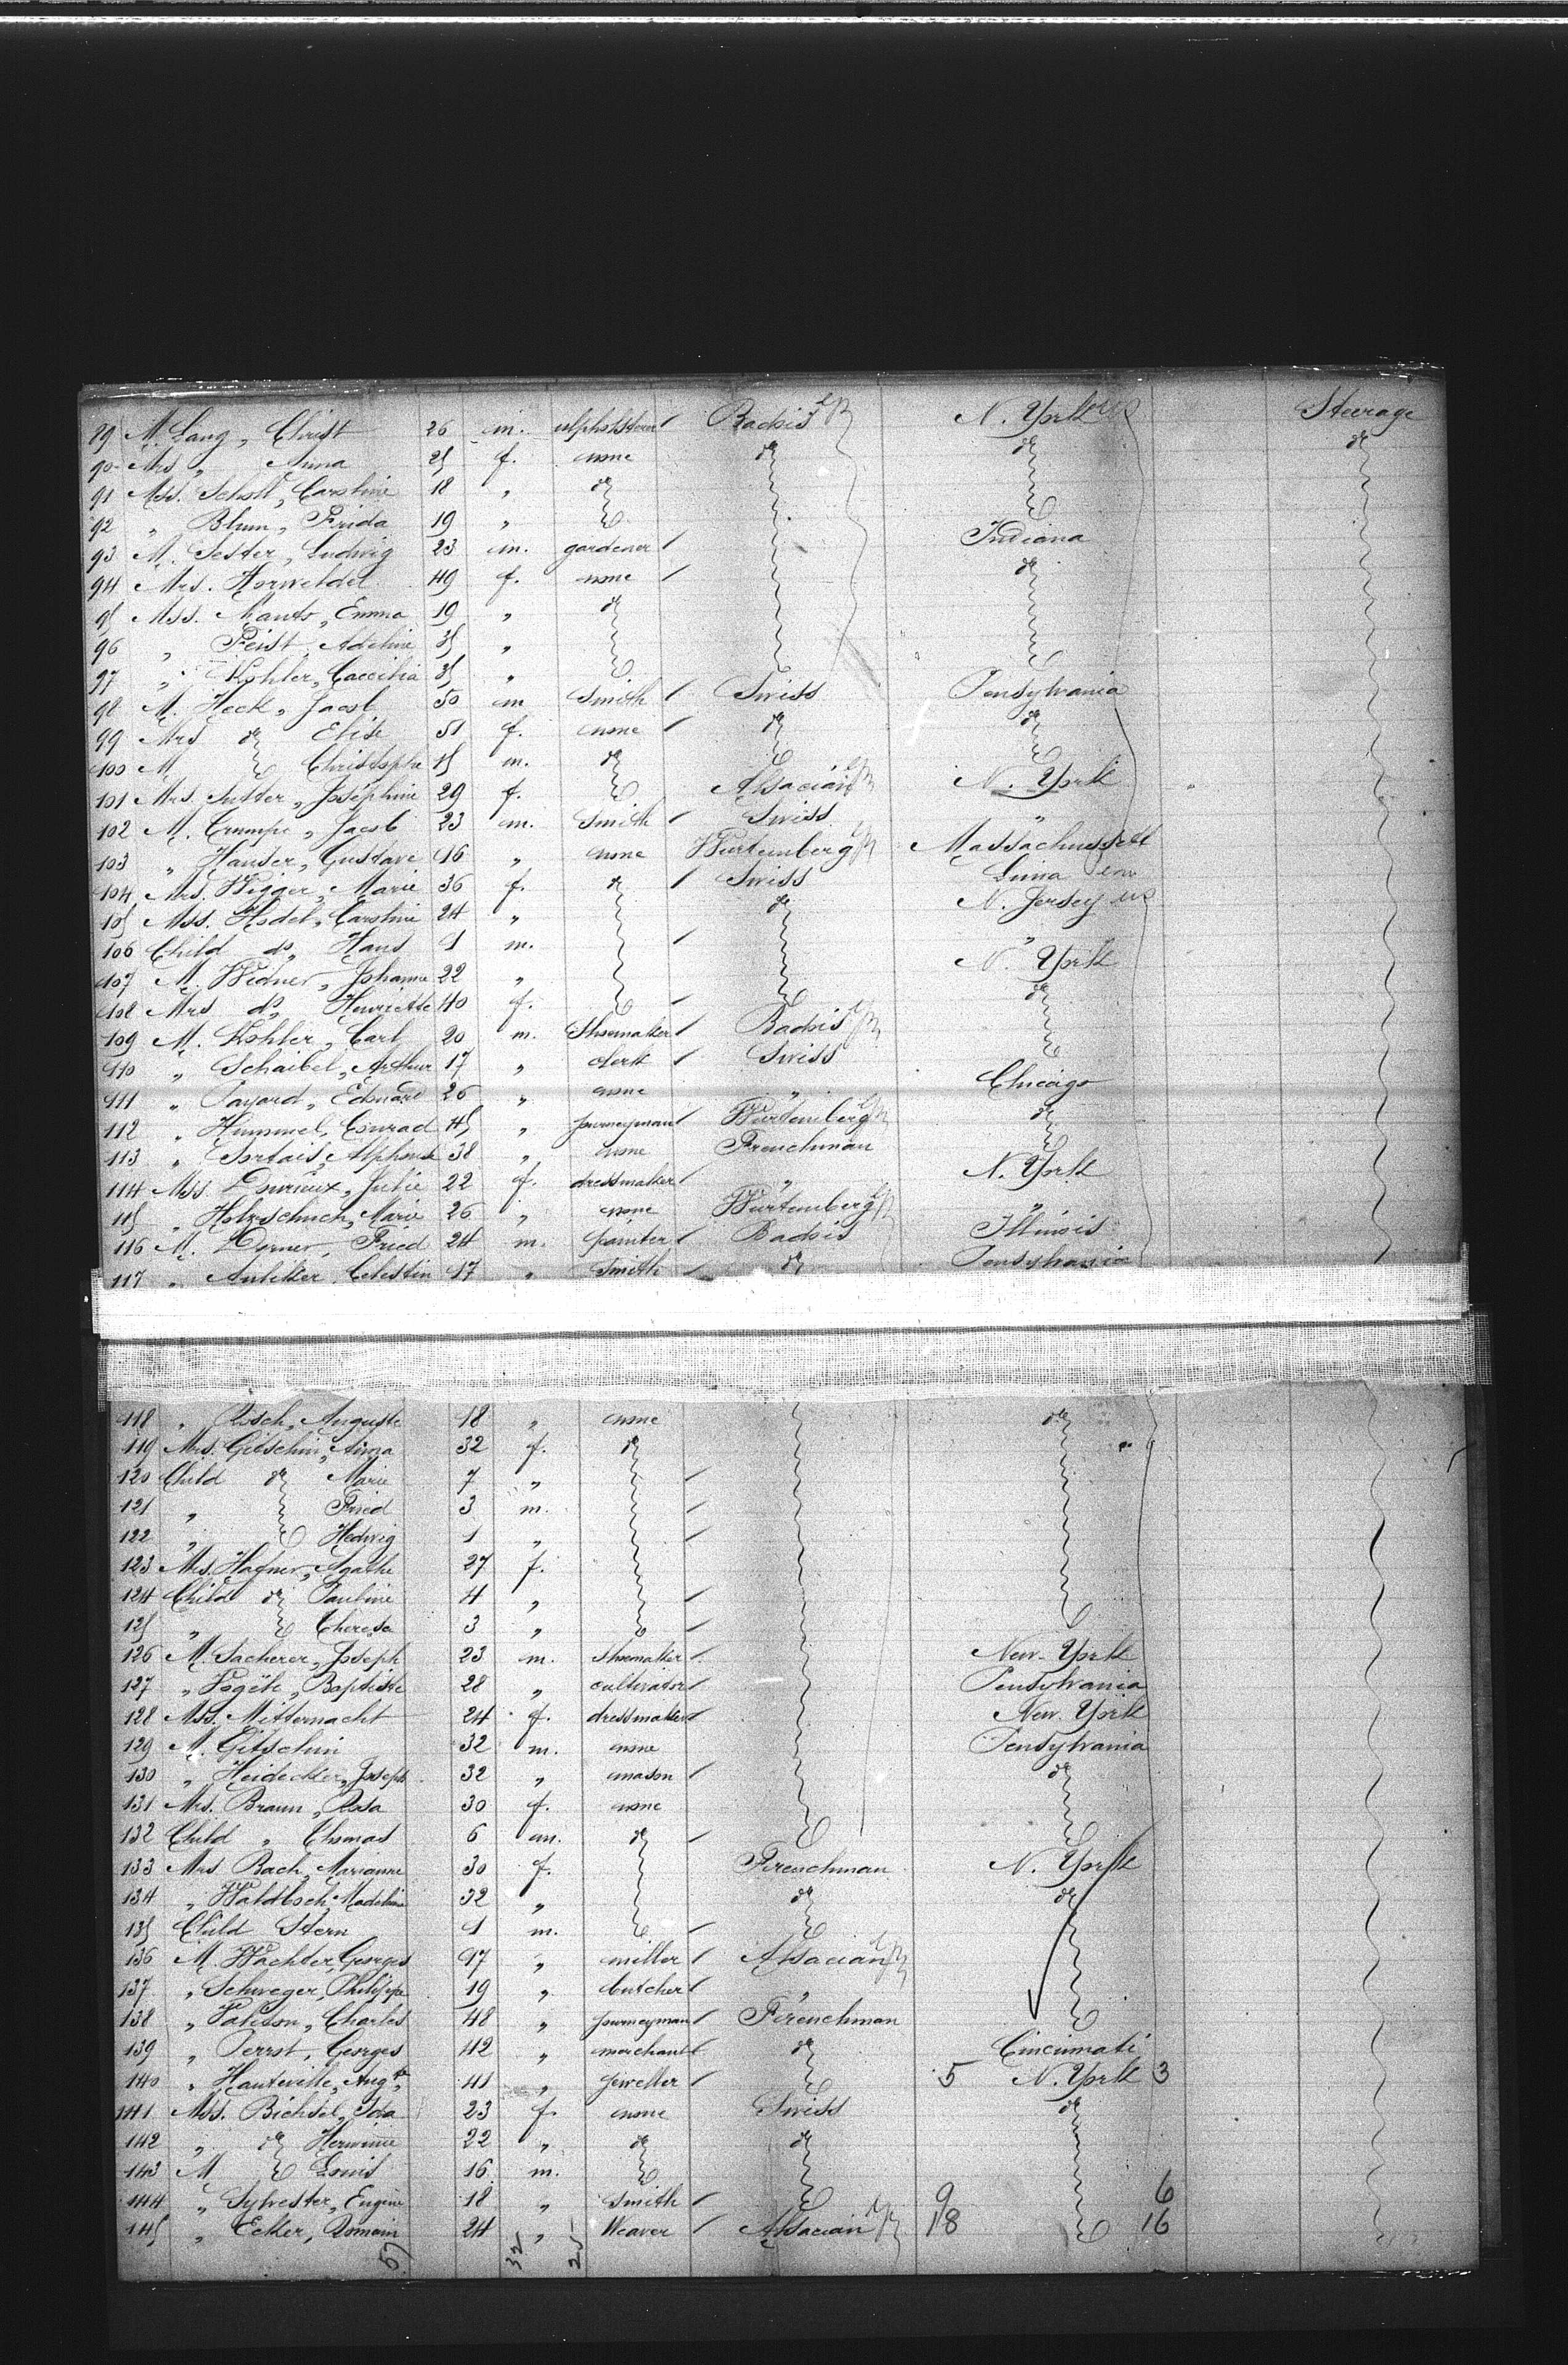 89 M. Lang, Christ 26 m. upholsterer Badois N. York us Steerage
90 Mrs " Anna 25 f. none do do do
91 Mss. Scholl, Caroline 18 " do
92 " Blum, Frida 19 "
93 M. Sester, Ludwig 23 m. gardener Indiana
94 Mrs. Horweldel 49 f. none do
95 Mss. Emma 19 " do
96 " Feist, Adeline 35 "
97 " Kohler, Caecilia 35 "
98 M. Heck, Jacob 50 m Smith Swiss Pensylvania
99 Mrs do Elise 51 f. none do do
100 M Christophe 15 m. do
101 Mrs. Sutter, Joséphine 29 f. Alsacian N. York
102 M. Crumpe, Jacob 23 m. Smith Swiss "
103 " Hauser, Gustave 16 " none Wurtemberg Massachussett
104 Mrs. Wigger, Marie 36 f. do Swiss Lima
105 Mss. Hodel, Caroline 24 " do N. Jersey us
106 Child do, Hans 1 m. "
107 M. Widner, Johann 22 " N. York
108 Mrs do, Henriette 40 f. do
109 M. Kohler, Carl 20 m. Shoemaker Badois
110 " Schaibel, Arthur 17 " clerk Swiss
111 " Payard, Edouard 26 " none " Chicago
112 " Himmel, Conrad 45 " journeyman Wurtemberg do
113 " Sortais, Alphonse 38 " none Frenchman
114 Mss. Dourieux, Julie 22 f. dressmaker " N. York
115 " Holzschuch, Marie 26 " none Wurtemberg "
116 M. Dorner, Fried 24 m. painter Badois Illinois
117 " Anliker, Celestin 17 " Smith do Pensylvania
118 " Rosch, Auguste 18 " none do
119 Mrs. Gitschin, Anna 32 f. do
120 Child do Marie 7 "
121 " Fried 3 m.
122 " Hedwig 1 "
123 Mrs. Hafner, Agathe 27 f.
124 Child do Pauline 4 "
125 " Theresa 3 "
126 M. Sacherer, Joseph 23 m. Shoemaker New-York
127 " Vögéle, Baptiste 28 " cultivator Pensylvania
128 Mss. Mitternacht 24 f. dressmaker New. York
129 M. Gitschin 32 m. none Pensylvania
130 " Heidecker, Joseph 32 " mason do
131 Mrs. Braun, Rosa 30 f. none
132 Child " Thomas 6 m. do
133 Mrs Bach, Marianne 30 f. Frenchman N. York
134 " Waldboch, Madeleine 32 " do do
135 Child Stern 1 m.
136 M. Wachter, Georges 17 " miller Alsacian
137 " Schweger, Philippe 19 " butcher "
138 " Palison, Charles 48 " journeyman Frenchman
139 " Perrot, Georges 42 " merchant do Cincinnati
140 " Hauteville, Augte, 41 " jeweller 5 N. York 3
141 Mss. Bichsel, Ida 23 f. none Swiss do
142 " do Hermine 22 " do do
143 M Louis 16 m.
144 " Sylvester, Eugène 18 " Smith 9 6
145 " Ecker, Romain 24 " Weaver Alsacian 18 16
57 32 25